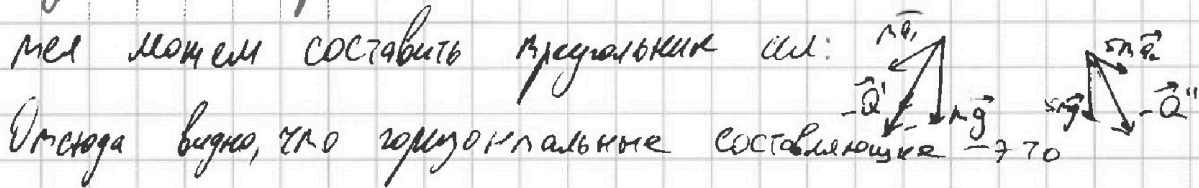 мел можем составить треугольник сил: m\vec{a}_1 -\vec{Q}' m\vec{g} 5m\vec{a}_2 5m\vec{g} -\vec{Q}''
Отсюда видно, что горизонтальные составляющие – это